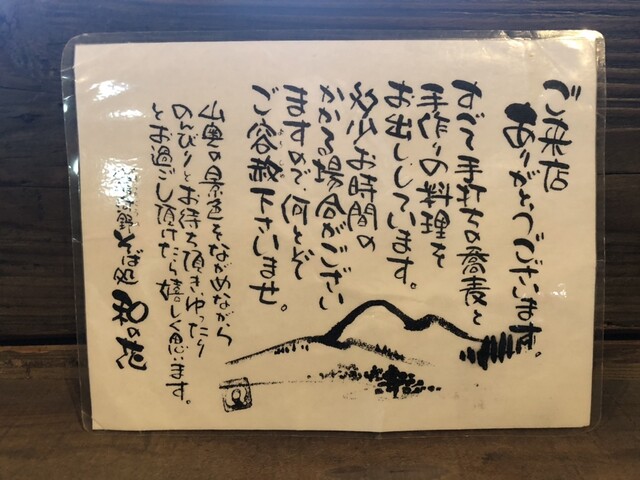 ご来店
ありがとうございます。
すべて手打ちの蕎麦と
手作りの料理を
お出ししています。
多少お時間の
かかる場合がござい
ますので何とぞ
ご容赦下さいませ。
山奥の景色をながめながら
のんびりとお待ち頂きゆったり
とお過ごし頂けたら嬉しく思います。
そば処